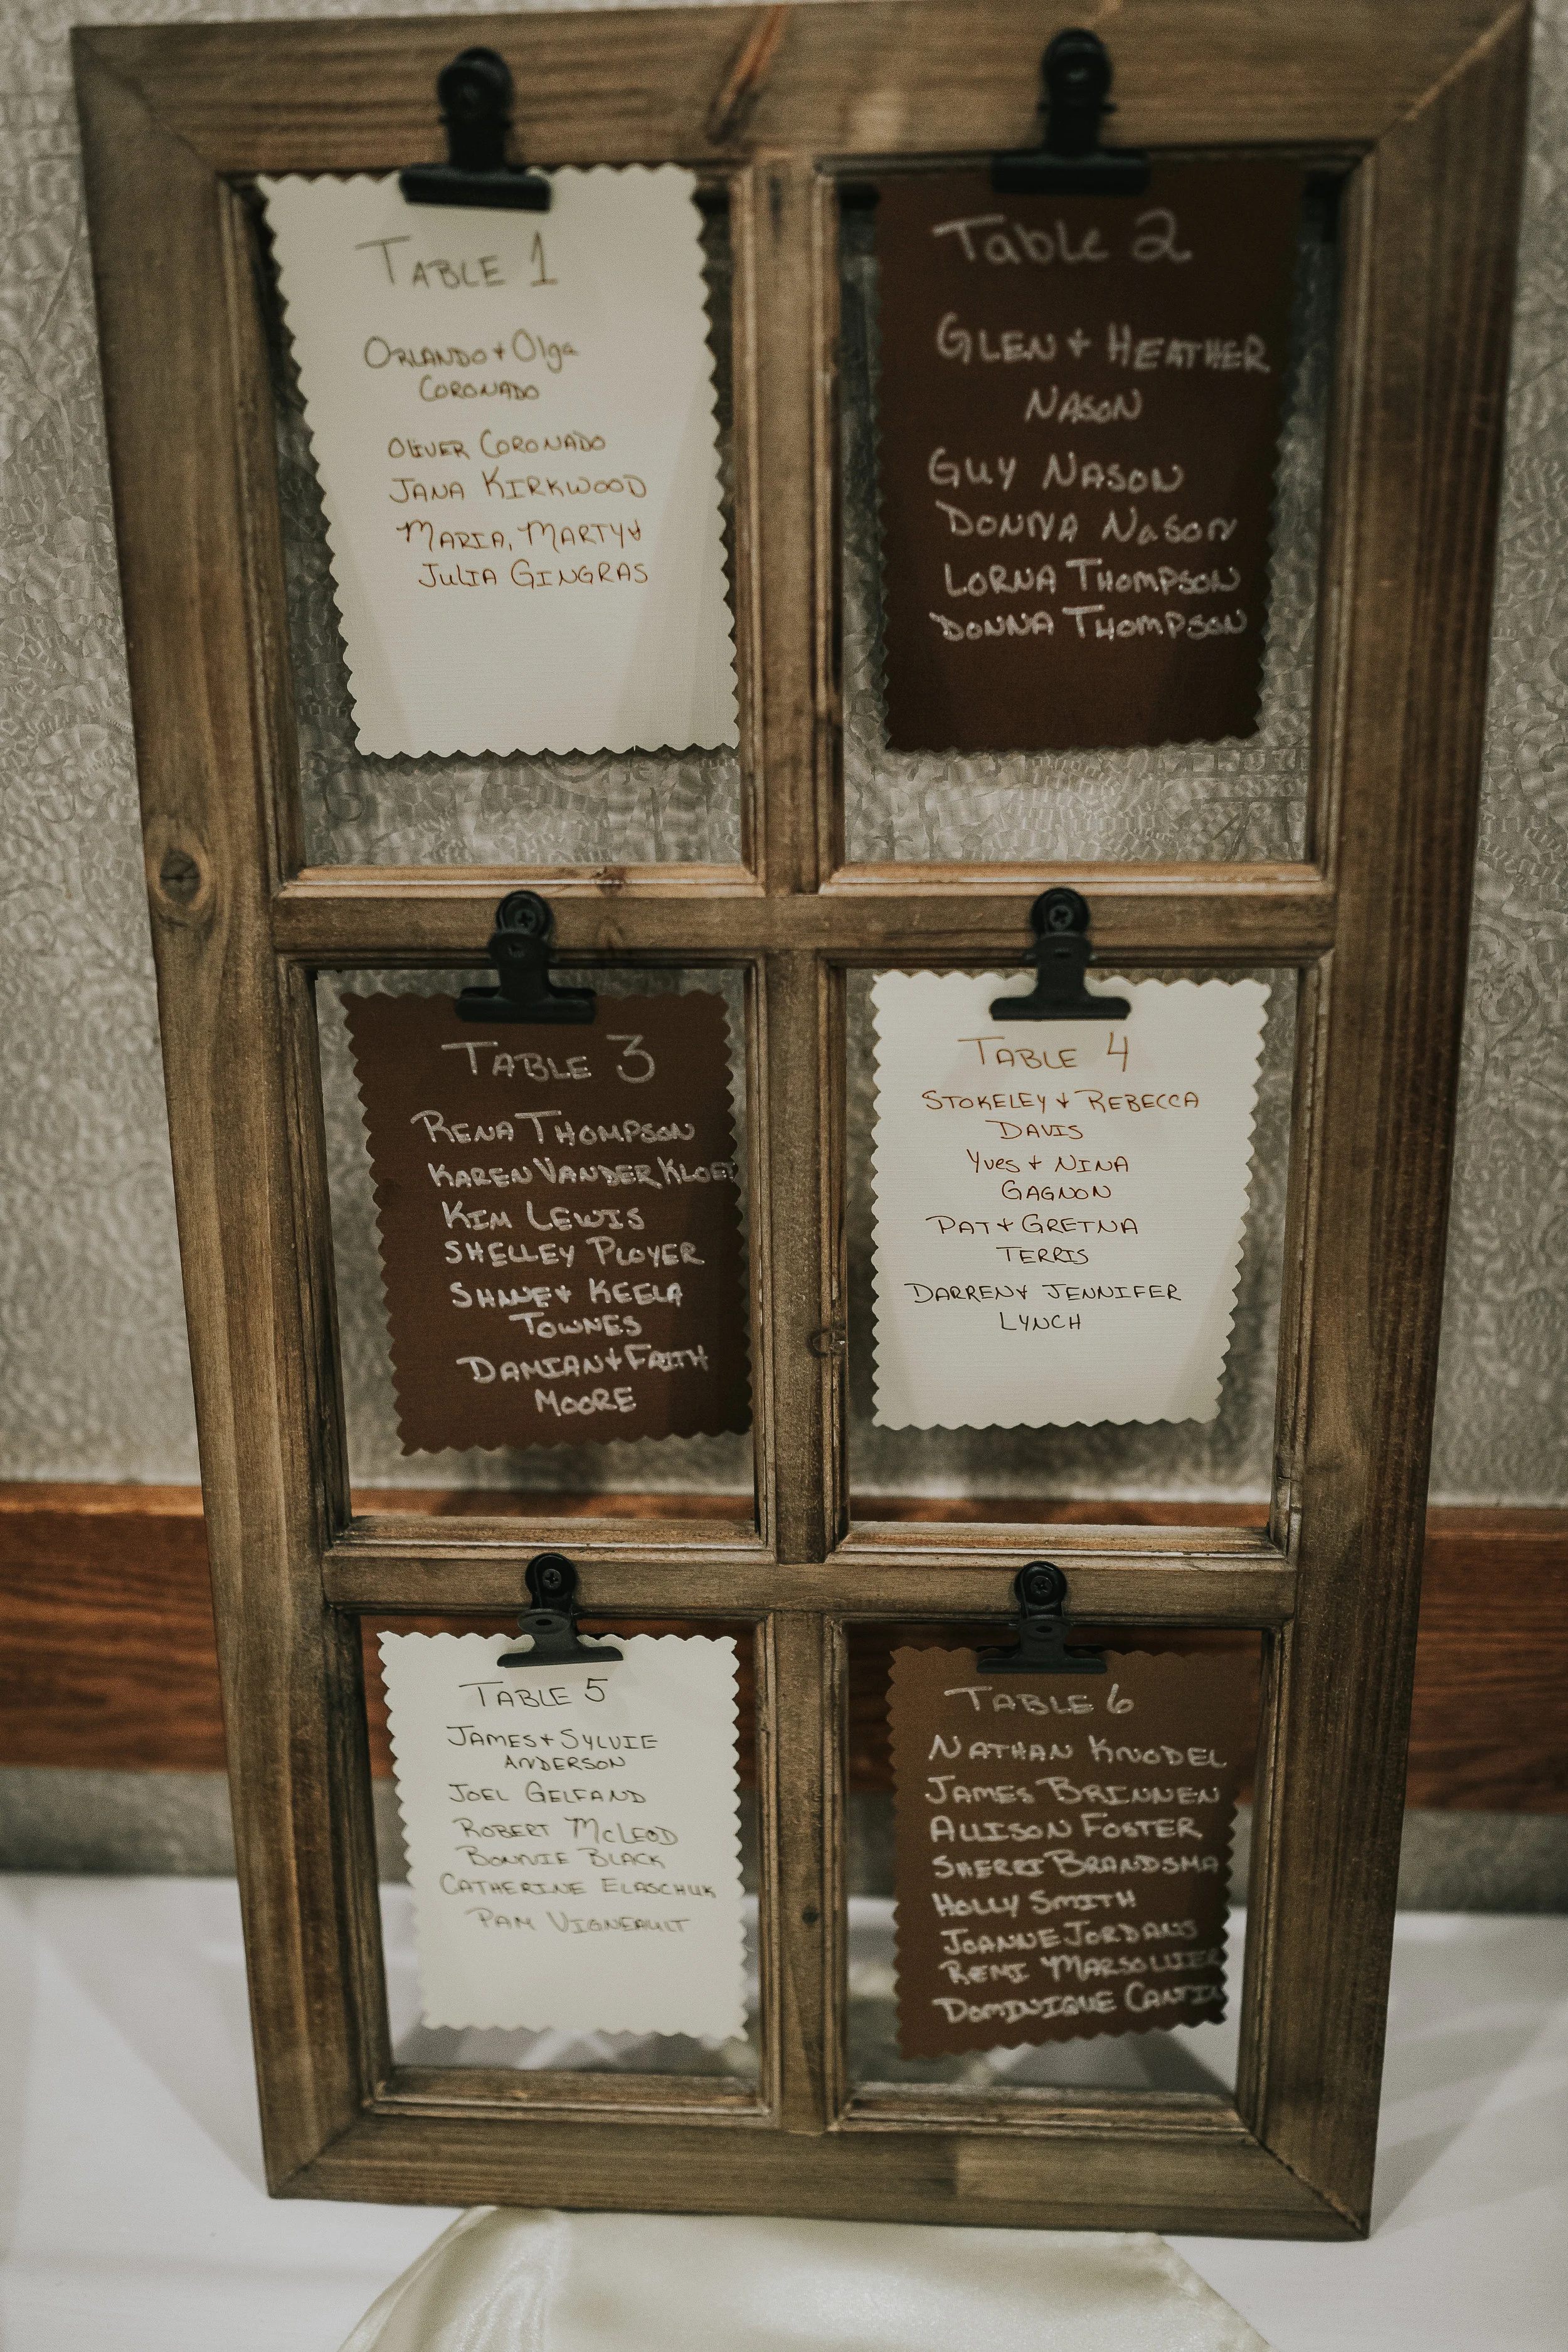 TABLE 1
ORLANDO + Olga
CORONADO
OLIVER CORONADO
JANA KIRKWOOD
MARIA, MARTY &
JULIA GINGRAS
Table 2
GLEN + HEATHER
NASON
GUY NASON
DONNA NASON
LORNA THOMPSON
DONNA THOMPSON
TABLE 3
RENA THOMPSON
KAREN VANDER KLOET
KIM LEWIS
SHELLEY PLOYER
SHANE + KEELA
TOWNES
DAMIAN + FAITH
MOORE
TABLE 4
STOKELEY + REBECCA
DAVIS
Yves + NINA
GAGNON
PAT + GRETNA
TERRIS
DARREN & JENNIFER
LYNCH
TABLE 5
JAMES + SYLVIE
ANDERSON
JOEL GELFAND
ROBERT McLEOD
BONNIE BLACK
CATHERINE ELASCHUK
PAM VIGNEAULT
TABLE 6
NATHAN KNODEL
JAMES BRINNEN
ALLISON FOSTER
SHERRI BRANDSMA
HOLLY SMITH
JOANNE JORDANS
REMI MARSOLLIER
DOMINIQUE CANTIN